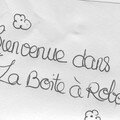 Bienvenue dans
La Boite à Robo